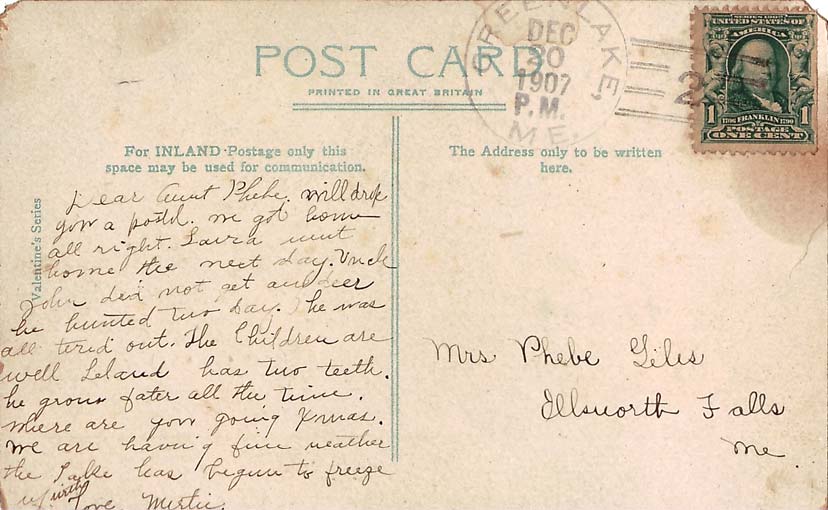 POST CARD
PRINTED IN GREAT BRITAIN
GREEN LAKE,
DEC
30
1907
P.M.
ME
2
SERIES 1902
UNITED STATES OF
AMERICA
1
1706 FRANKLIN 1790
1
POSTAGE
ONE CENT
For INLAND Postage only this
space may be used for communication.
The Address only to be written
here.
Valentine's Series
Dear Aunt Phebe. Will drop
you a postel. we got home
all right. Laura went
home the next day. Uncle
John did not get any deer
he hunted two day. he was
all tered out. The Children are
well Leland has two teeth.
he grows fater all the time.
where are you going Xmas.
we are having fine weather
the Lake has begun to freeze
up with
Love Mertie.
Mrs Phebe Giles
Illsworth Falls
Me